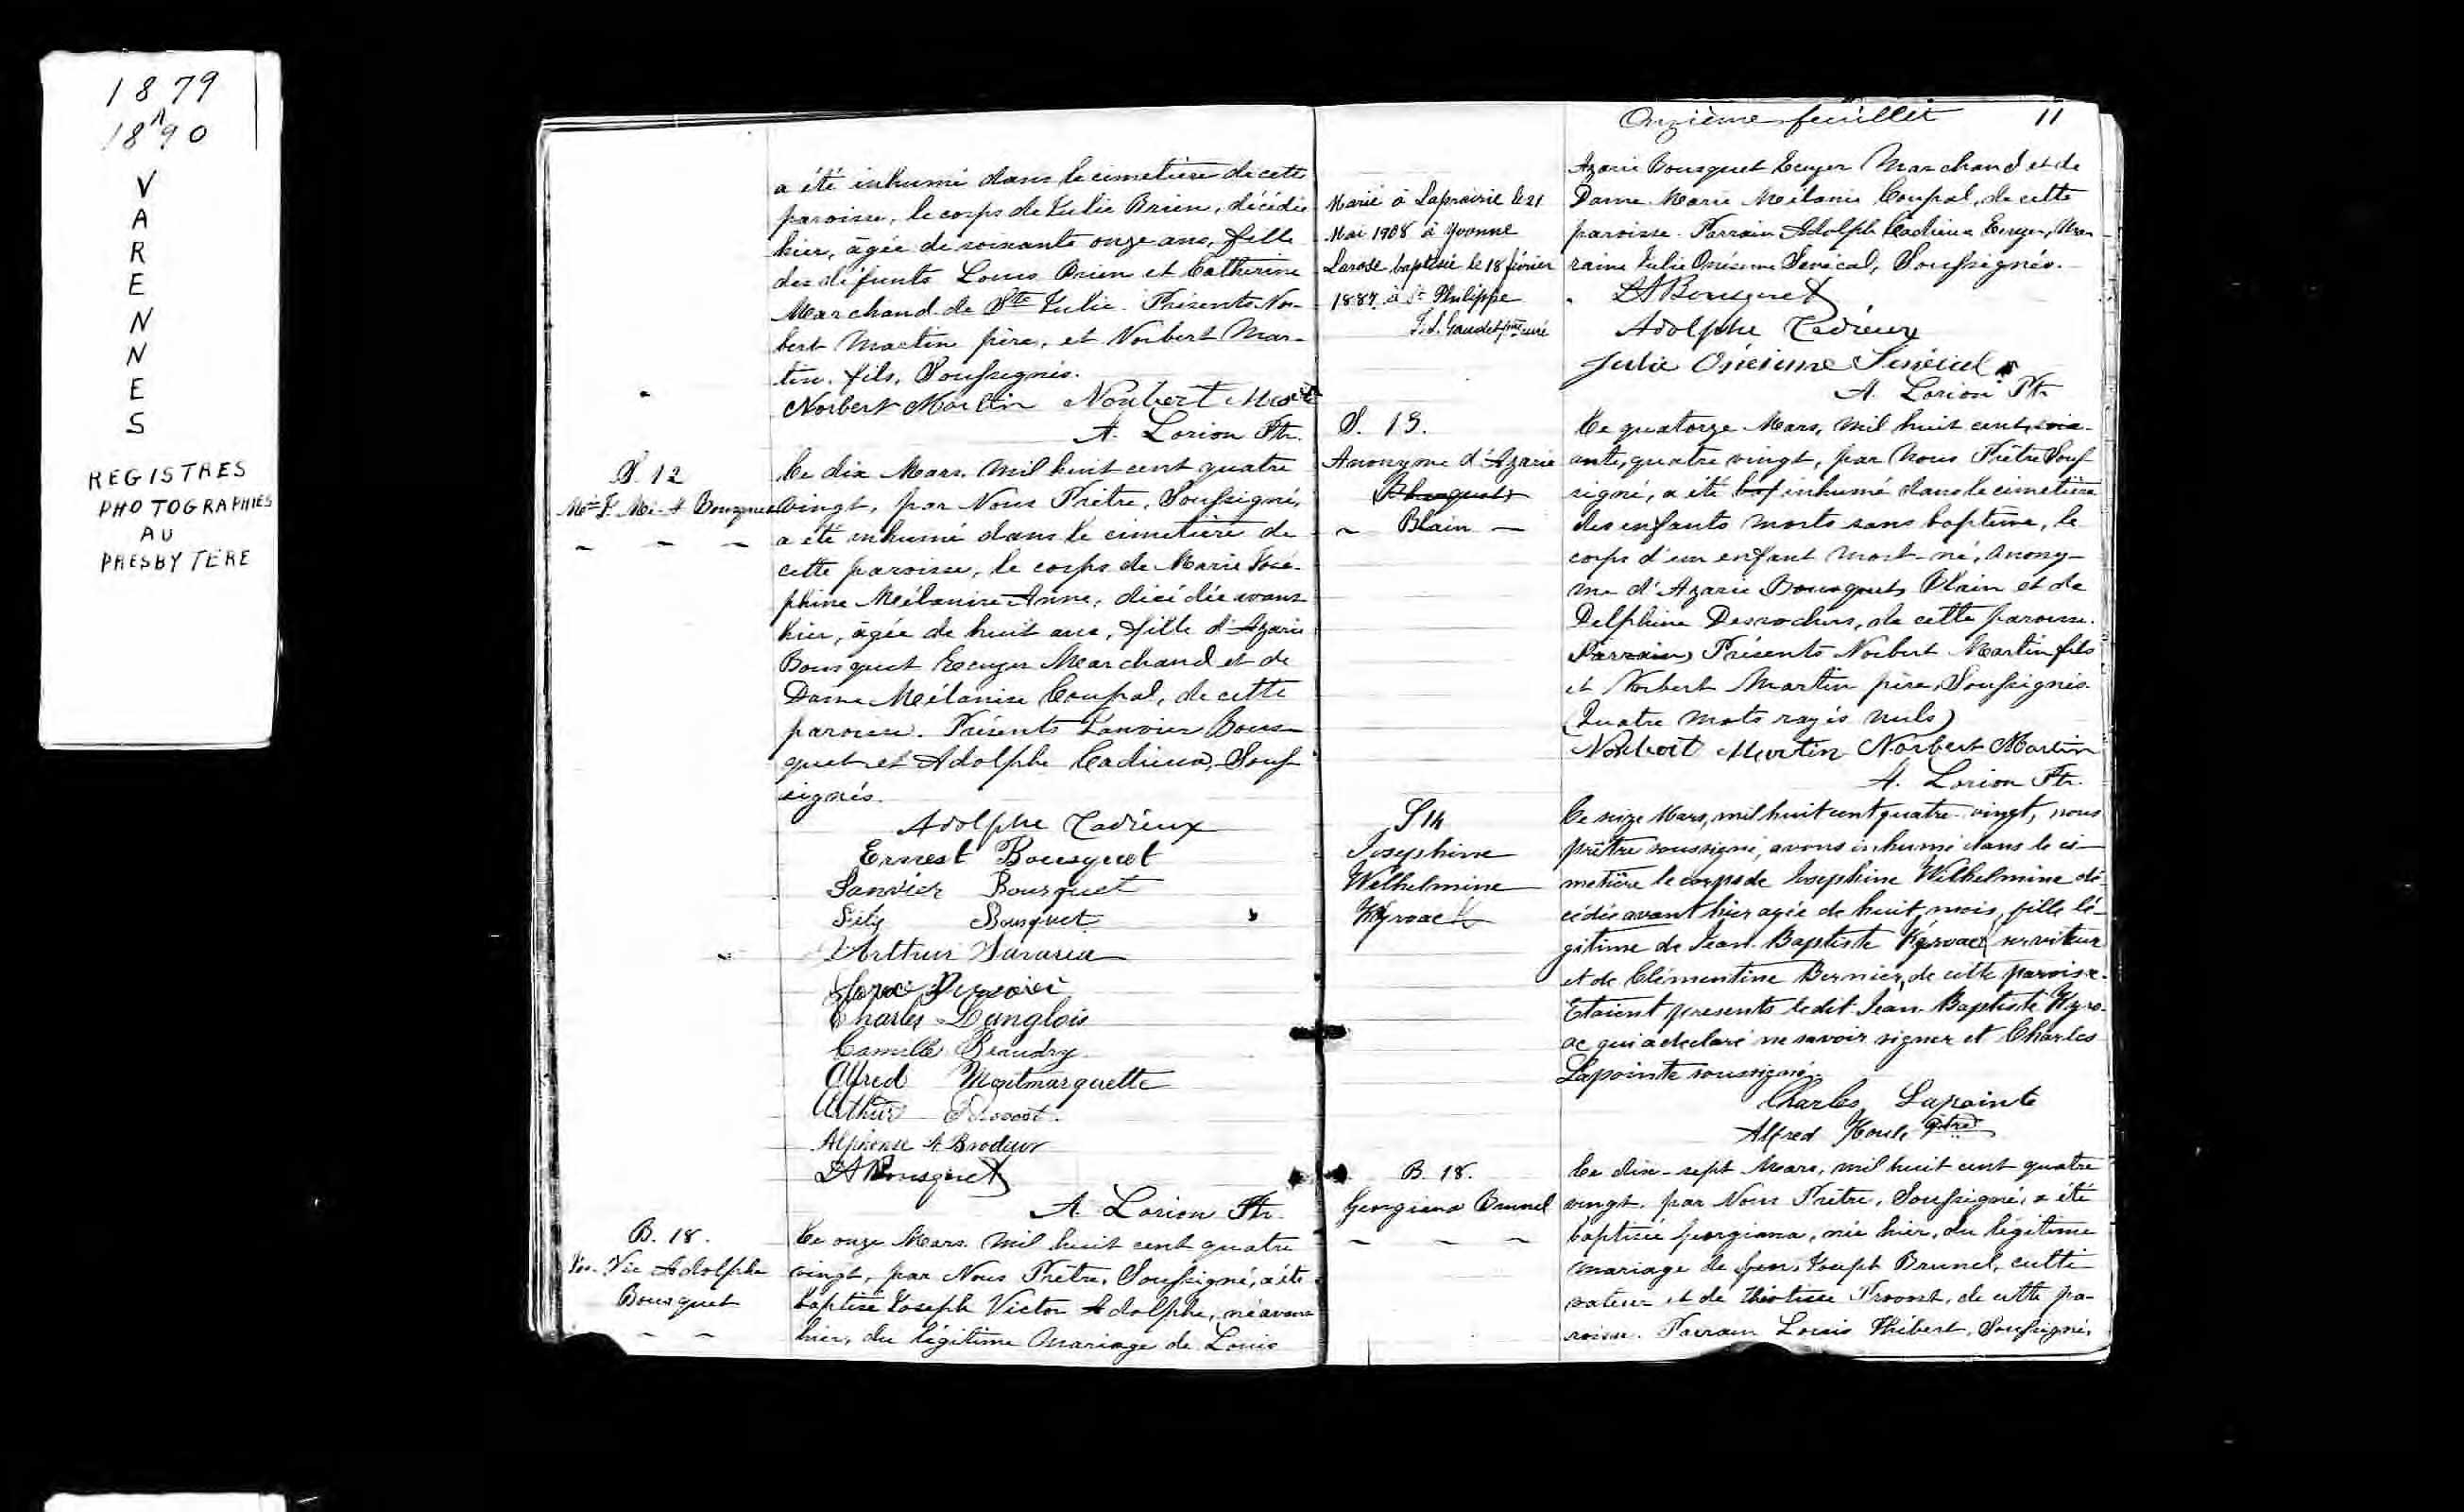 1879
A
1890
V
A
R
E
N
N
E
S
REGISTRES
PHOTOGRAPHIÉS
AU
PRESBYTÈRE
a été inhumé dans le cimetière de cette
paroisse, le corps de Julie Brien, décédée
hier, âgée de soixante onze ans, fille
des défunts Louis Brien et Catherine
Marchand de Ste Julie. Présents Nor-
bert Martin père, et Norbert Mar-
tin, fils, Soussignés.
Norbert Martin Norbert
A. Lorion Ptr.
S. 12
Bousquet
Le dix Mars, mil huit cent quatre
vingt, par Nous Prêtre, Soussigné,
a été inhumé dans le cimetière de
cette paroisse, le corps de Marie José-
phine Mélanise Anne, décédée avant
hier, âgée de huit ans, fille d'Azarie
Bousquet Ecuyer Marchand et de
Dame Mélanise Coupal, de cette
paroisse. Présents Janvier Bous-
quet et Adolphe Cadieux, Sous
signés.
Adolphe Cadieux
Ernest Bousquet
Janvier Bousquet
Bousquet
Arthur
Charles Langlois
Camille Beaudry
Alfred Montmarquette
Arthur
Alphonse A. Brodeur
LA Bousquet
A. Lorion Ptr.
B. 18.
Jos. Vic Adolphe
Bousquet
Le onze Mars, mil huit cent quatre
vingt, par Nous Prêtre, Soussigné, a été
baptisé Joseph Victor Adolphe, né avant
hier, du légitime mariage de Louis
Onzième feuillet 11
Azarie Bousquet Ecuyer Marchand et de
Dame Marie Mélanie Coupal, de cette
paroisse. Parrain Adolphe Cadieux Ecuyer, Mar-
raine Julie Onésime Senécal, Soussignés.
LA Bousquet
Adolphe Cadieux
Julie Onésime Sénécal
A. Lorion Ptr
Marié à Laprairie le 21
Mai 1908 à Yvonne
Larose baptisée le 18 février
1887 à St Philippe
Gaudet ptre curé
S. 13.
Anonyme d'Azarie
Bousquet
Blain
Le quatorze Mars, mil huit cent, soix-
ante, quatre vingt, par Nous Prêtre Sous
signé, a été bap inhumé dans le cimetière
des enfants morts sans baptême, le
corps d'un enfant mort-né, anony-
me d'Azarie Bousquet Blain et de
Delphine Desrochers, de cette paroisse.
Parrain Présents Norbert Martin fils
et Norbert Martin père, Soussignés.
(Quatre mots rayés nuls)
Norbert Martin Norbert Martin
A. Lorion Ptr.
S 14
Josephine
Wilhelmine
Kyroack
Le seize Mars, mil huit cent quatre-vingt, nous
prêtre soussigné, avons inhumé dans le ci-
metière le corps de Josephine Wilhelmine dé-
cédée avant hier agée de huit mois, fille lé-
gitime de Jean-Baptiste Kyroac serviteur
et de Clémentine Bernier, de cette paroisse.
Etaient présents ledit Jean-Baptiste Kyro-
ac qui a déclaré ne savoir signer et Charles
Lapointe soussigné.
Charles Lapointe
Alfred Houle ptre
B. 18.
Georgiana Brunel
Le dix-sept Mars, mil huit cent quatre
vingt, par Nous Prêtre, Soussigné, a été
baptisée Georgiana, née hier, du légitime
mariage de feu, Joseph Brunel, culti
vateur et de Théotise Provost, de cette pa-
roisse. Parrain Louis Hébert, Soussigné,